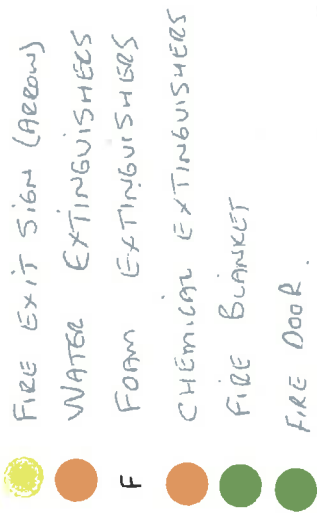 FIRE EXIT SIGN (ARROW)
WATER EXTINGUISHERS
F FOAM EXTINGUISHERS
CHEMICAL EXTINGUISHERS
FIRE BLANKET
FIRE DOOR.